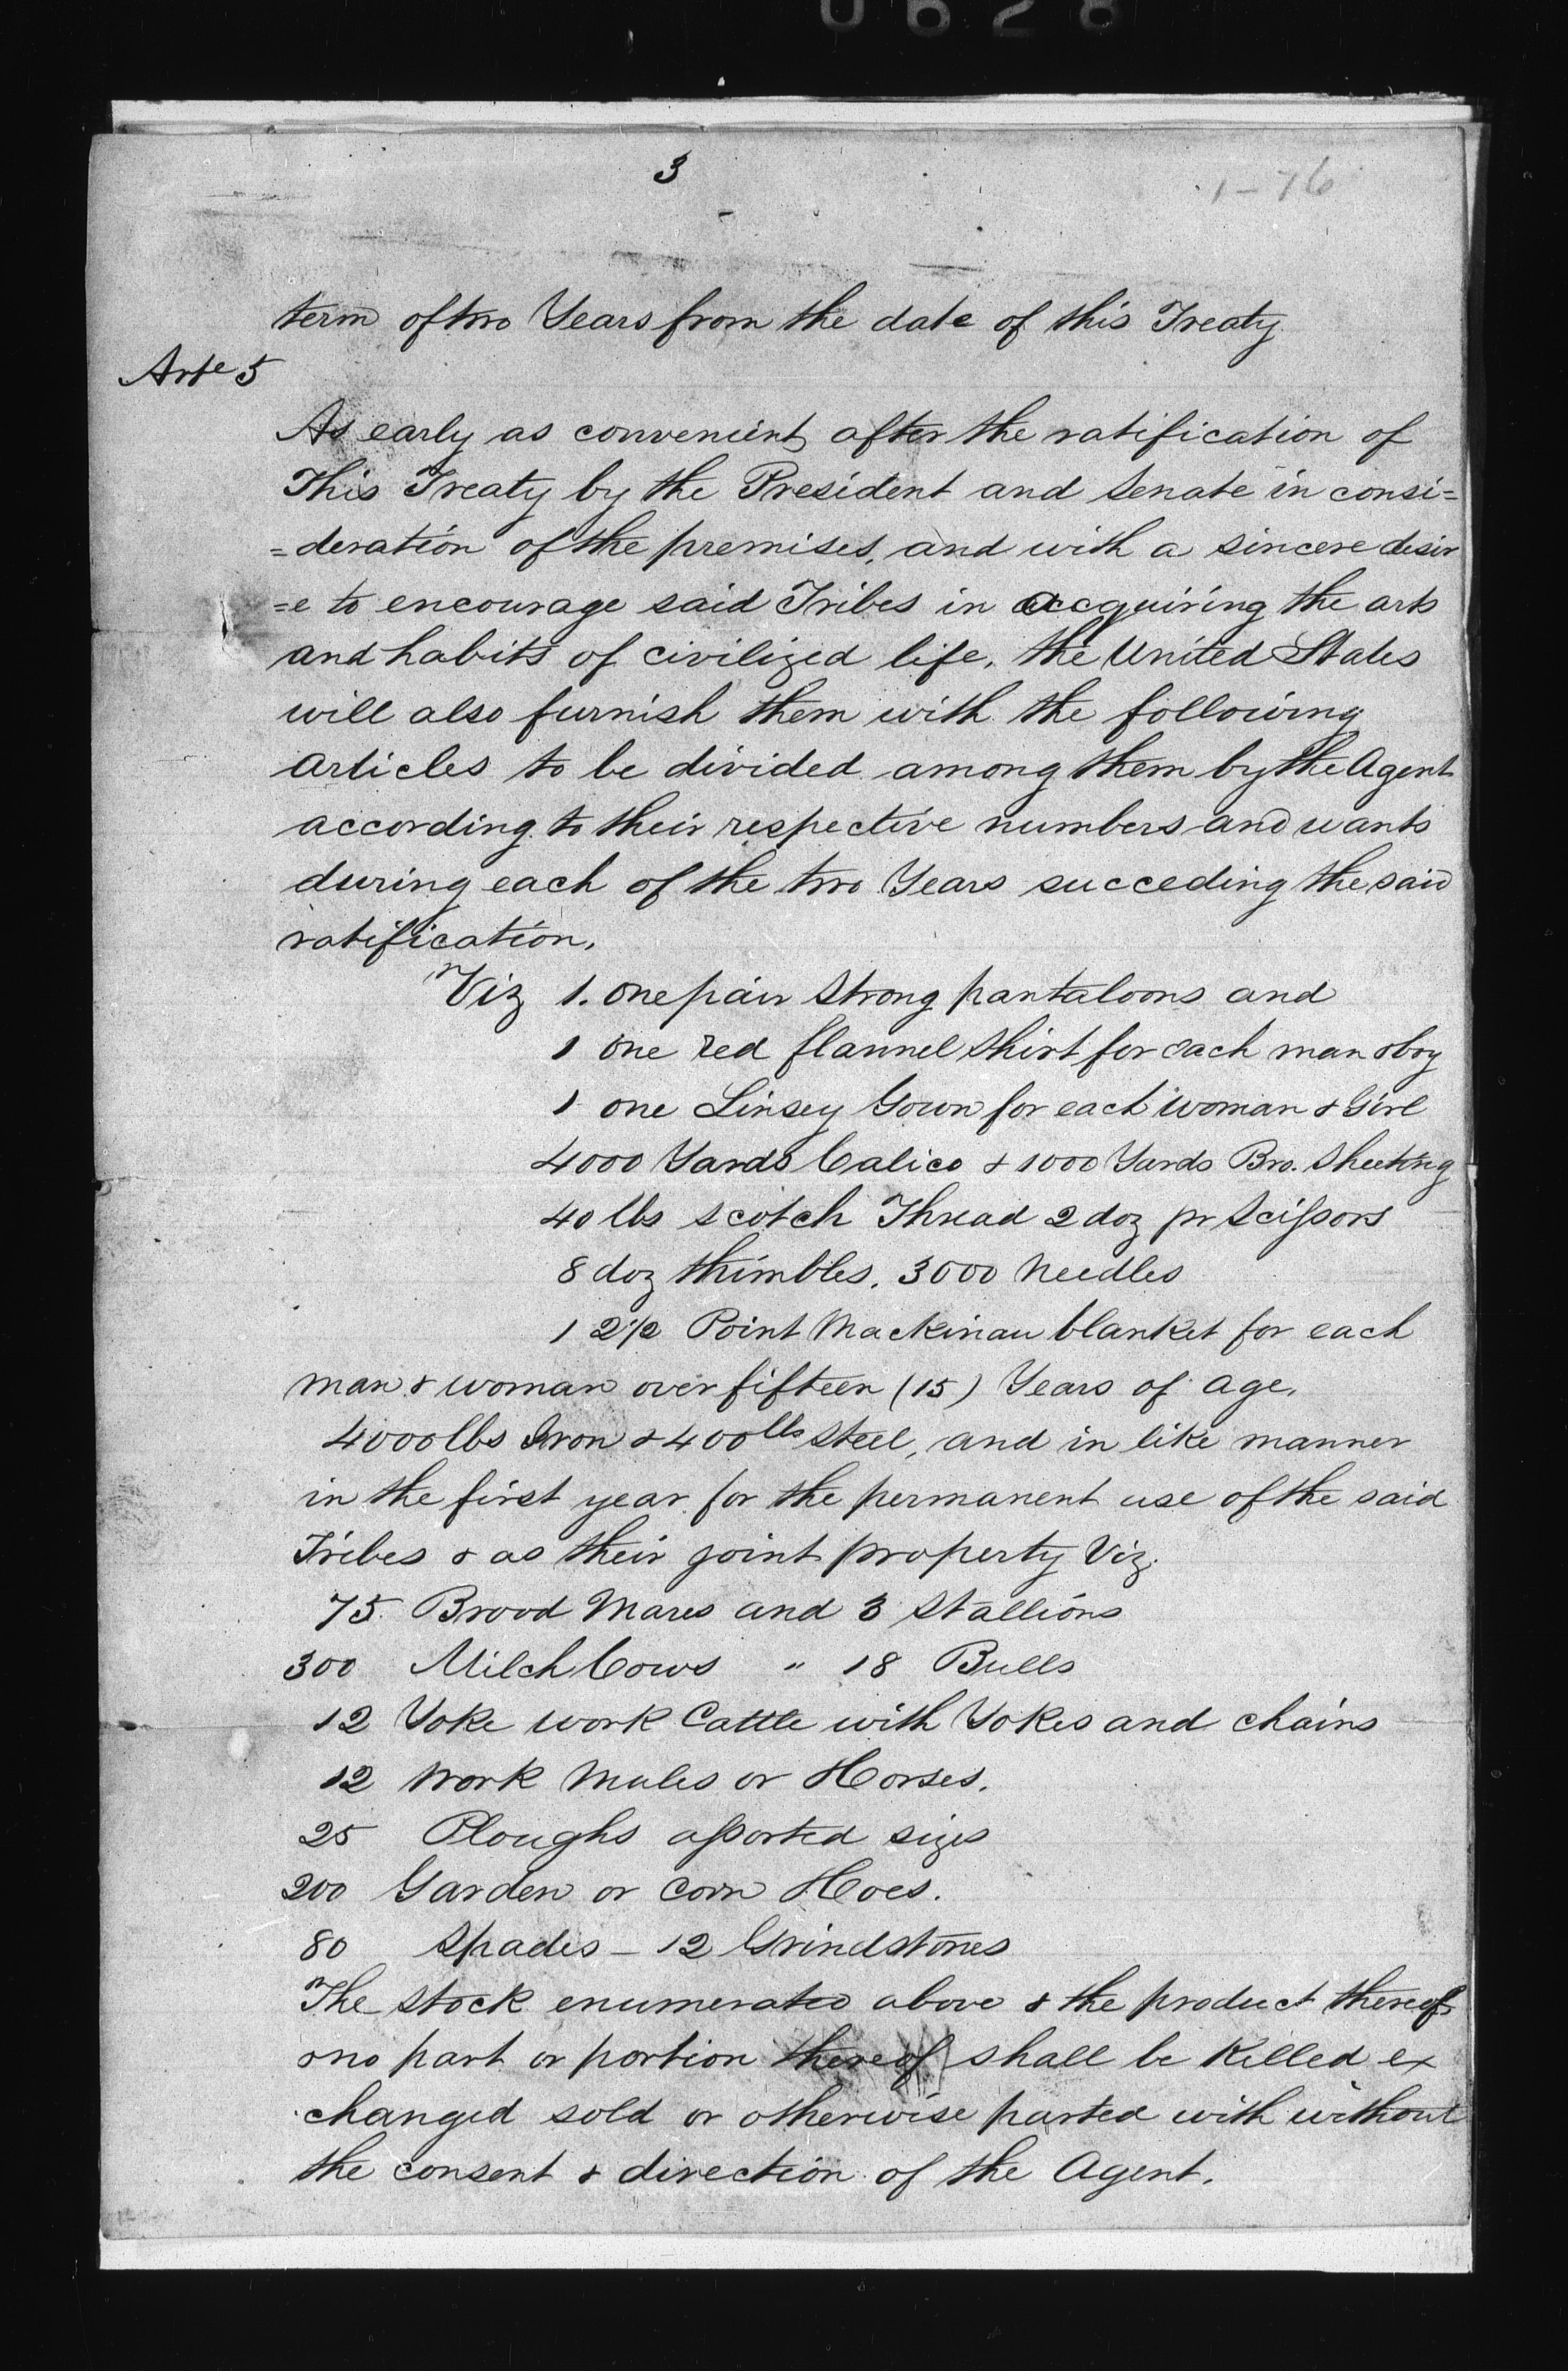 0628
3
1-76
term of two Years from the date of this Treaty
Arte 5
As early as convenient, after the ratification of
This Treaty by the President and Senate in consi=
=deration of the premises, and with a sincere desir
=e to encourage said Tribes in accquiring the arts
and habits of civilized life, the United States
will also furnish them with the following
articles to be divided among them by the Agent
according to their respective numbers and wants
during each of the two Years succeding the said
ratification.
Viz 1. one pair Strong pantaloons and
1 one red flannel Shirt for each man & boy
1 one Linsey Gown for each Woman & Girl
4000 Yards Calico & 1000 Yards Bro. Sheeting
40 lbs Scotch Thread 2 doz pr Scissors
8 doz thimbles. 3000 Needles
1 2½ Point Mackinau blanket for each
man & woman over fifteen (15) Years of age.
4000 lbs Iron & 400 lbs Steel, and in like manner
in the first year for the permanent use of the said
Tribes & as their joint property Viz.
75. Brood Mares and 3 Stallions
300 Milch Cows " 18 Bulls
12 Yoke work Cattle with Yokes and chains
12 Work Mules or Horses.
25 Ploughs assorted sizes
200 Garden or Corn Hoes.
80 Spades – 12 Grindstones
The stock enumerated above & the product thereof
& no part or portion thereof shall be Killed ex
changed sold or otherwise parted with without
the consent & direction of the Agent.